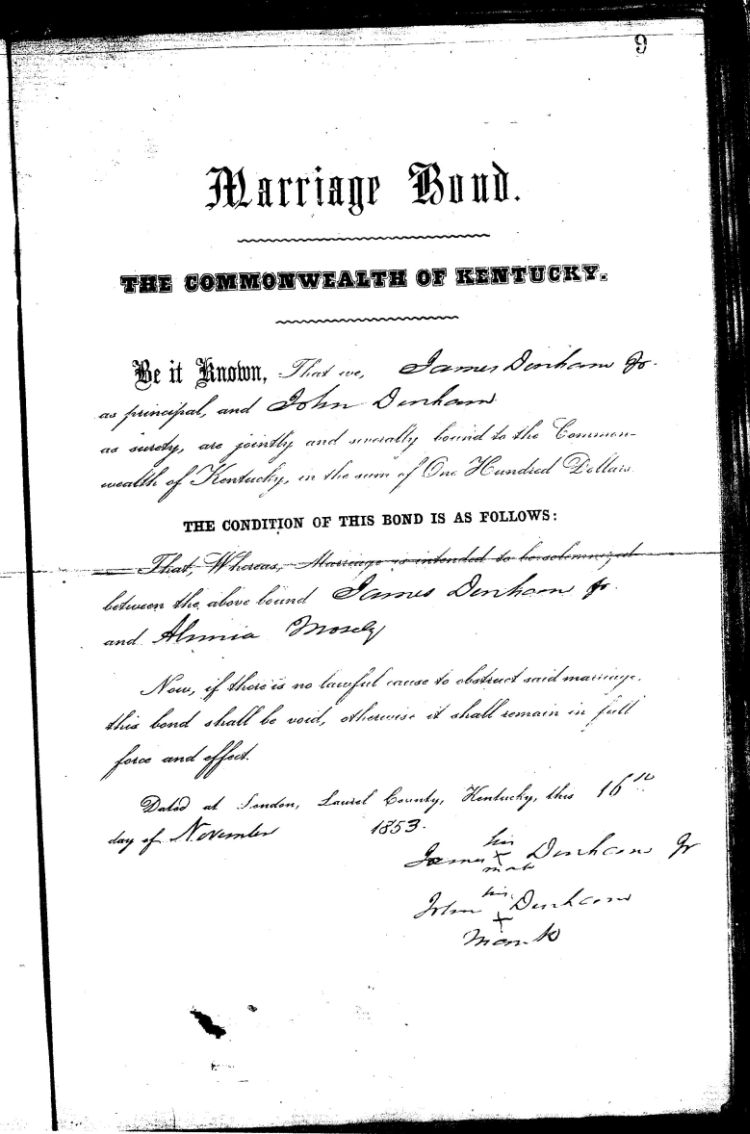 9
Marriage Bond.
THE COMMONWEALTH OF KENTUCKY.
Be it Known, That we, James Denham Jr.
as principal, and John Denham
as surety, are jointly and severally bound to the Common-
wealth of Kentucky, in the sum of One Hundred Dollars.
THE CONDITION OF THIS BOND IS AS FOLLOWS:
That, Whereas, Marriage is intended to be solemnized
between the above bound James Denham Jr.
and Mosely
Now, if there is no lawful cause to obstruct said marriage,
this bond shall be void, otherwise it shall remain in full
force and effect.
Dated at London, Laurel County, Kentucky, this 16th
day of November 1853.
his
James X Denham Jr
mark
his
John X Denham
mark